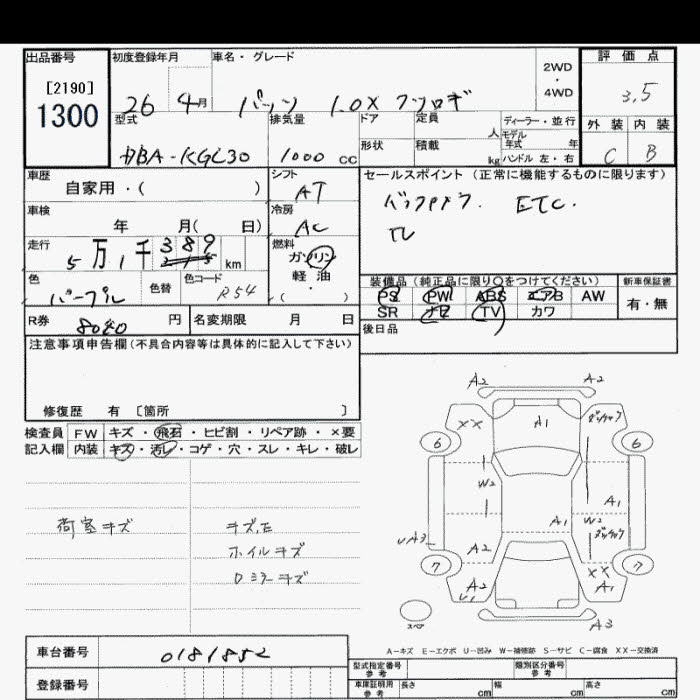 出品番号 初度登録年月 車名・グレード 2WD・4WD 評価点
[2190]
1300
26 4月 パッソ 1.0X クツロギ 3.5
型式 排気量 ドア 定員 人 ディーラー・並行 外装 内装
モデル年式 年
DBA-KGC30 1000 cc 形状 積載 kg ハンドル 左・右 C B
車歴 シフト セールスポイント(正常に機能するものに限ります)
自家用・( ) AT
車検 冷房 ETC.
年 月( 日) AC
走行 燃料
5万1千389 km ガソリン
軽油
・( )
色 色替 色コード 装備品(純正品に限り○をつけてください) 新車保証書
パープル R54 PS PW ABS エアB AW 有・無
SR ナビ TV カワ
R券 8040 円 名変期限 月 日 後日品
注意事項申告欄(不具合内容等は具体的に記入して下さい)
修復歴 有 〔箇所 〕
検査員 FW キズ・飛石・ヒビ割・リペア跡・×要
記入欄 内装 キズ・汚レ・コゲ・穴・スレ・キレ・破レ
A2 A2
XX A1
6 6
W2 A1
A1 W2
UA3 A2
7 7
A2 U1 XX A1
スペア A3
荷室キズ
ホイルキズ
ロミラーキズ
A-キズ E-エクボ U-凹み W-補修跡 S-サビ C-腐食 XX-交換済
車台番号 0181852
登録番号
型式指定番号 参考 類別区分番号 参考
車庫証明用 参考 長さ cm 幅 cm 高さ cm